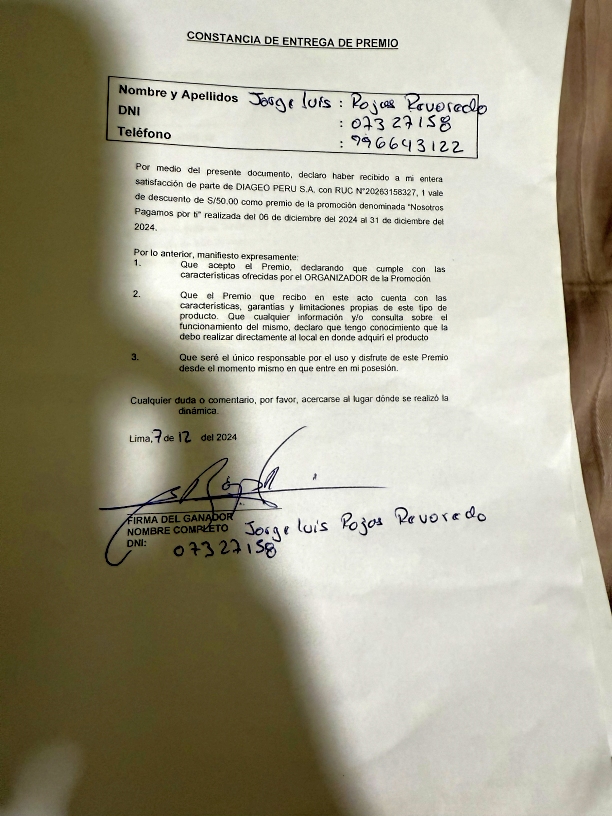 CONSTANCIA DE ENTREGA DE PREMIO
Nombre y Apellidos Jorge Luis : Rojas Revoredo
DNI : 07327158
Teléfono : 996643122
Por medio del presente documento, declaro haber recibido a mi entera
satisfacción de parte de DIAGEO PERU S.A. con RUC N°20263158327, 1 vale
de descuento de S/50.00 como premio de la promoción denominada "Nosotros
Pagamos por ti" realizada del 06 de diciembre del 2024 al 31 de diciembre del
2024.
Por lo anterior, manifiesto expresamente:
1. Que acepto el Premio, declarando que cumple con las
características ofrecidas por el ORGANIZADOR de la Promoción
2. Que el Premio que recibo en este acto cuenta con las
características, garantías y limitaciones propias de este tipo de
producto. Que cualquier información y/o consulta sobre el
funcionamiento del mismo, declaro que tengo conocimiento que la
debo realizar directamente al local en donde adquirí el producto
3. Que seré el único responsable por el uso y disfrute de este Premio
desde el momento mismo en que entre en mi posesión.
Cualquier duda o comentario, por favor, acercarse al lugar dónde se realizó la
dinámica.
Lima, 7 de 12 del 2024
FIRMA DEL GANADOR
NOMBRE COMPLETO Jorge Luis Rojas Revoredo
DNI: 07327158